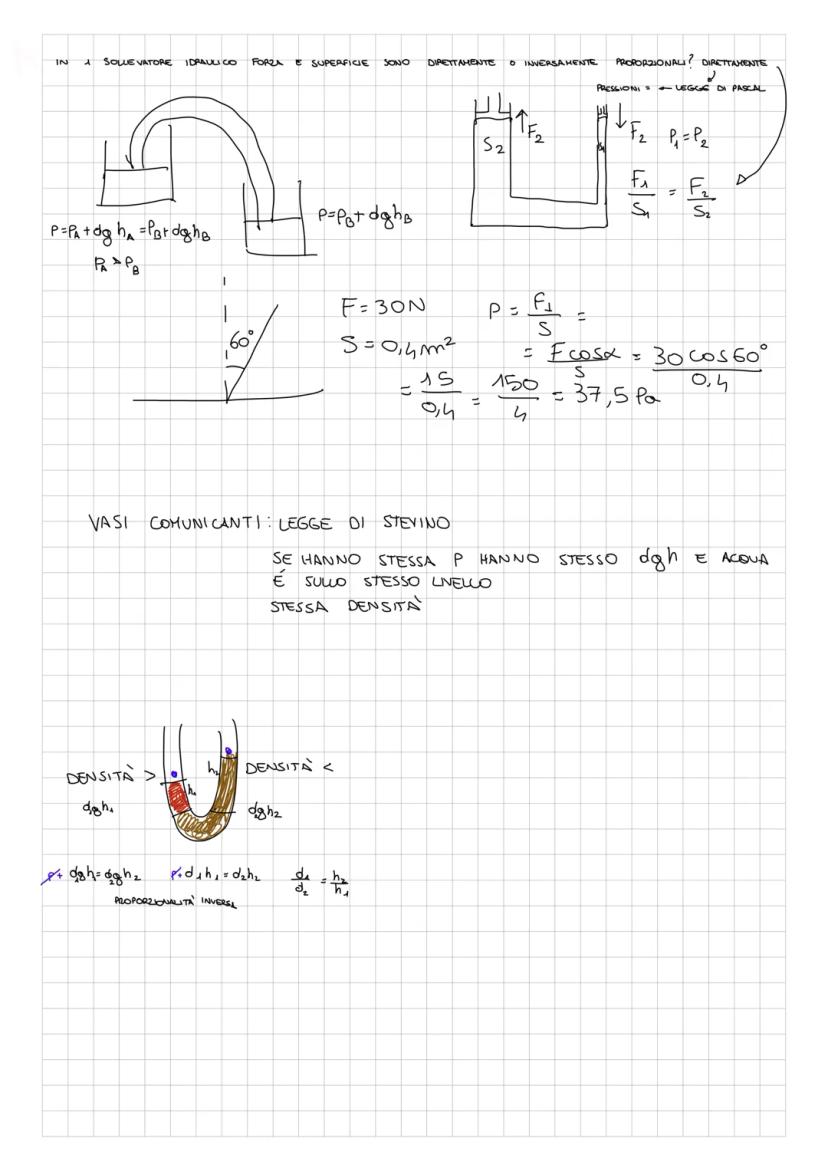 IN 1 SOLLEVATORE IDRAULICO FORZA E SUPERFICIE SONO DIRETTAMENTE O INVERSAMENTE PROPORZIONALI? DIRETTAMENTE
PRESSIONI = ← LEGGE DI PASCAL
S₂ ↑F₂ ↓F₂ P₁=P₂
F₁/S₁ = F₂/S₂
P=P_B+dgh_B
P=P_A+dgh_A=P_B+dgh_B
P_A > P_B
60°
F=30N
S=0,4m²
P = F⊥/S =
= Fcosα/S = 30cos60°/0,4
= 15/0,4 = 150/4 = 37,5 Pa
VASI COMUNICANTI: LEGGE DI STEVINO
SE HANNO STESSA P HANNO STESSO dgh E ACQUA
É SULLO STESSO LIVELLO
STESSA DENSITÀ
DENSITÀ > h₁ h₂ DENSITÀ <
d₁gh₁ d₂gh₂
P+ d₁gh₁=d₂gh₂ P+d₁h₁=d₂h₂ d₁/d₂ = h₂/h₁
PROPORZIONALITÀ INVERSA